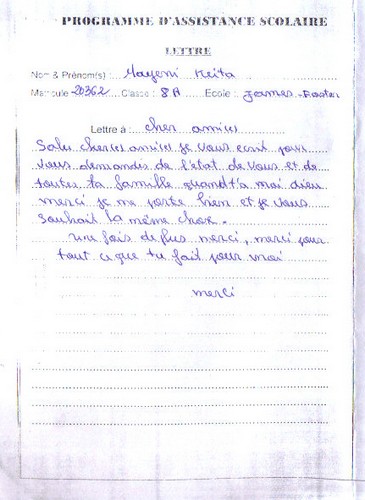 PROGRAMME D'ASSISTANCE SCOLAIRE
LETTRE
Nom & Prénom(s) : Mayeni Keita
Matricule 20362 Classe : 8A Ecole :
Lettre à : cher ami(e)
Salu cher(e) ami(e) je vous ecrit pour
vous demandis de l'état de vous et de
toutes ta famille quand t'a moi dieu
merci je me porte bien et je vous
souhait la même chose.
une fois de plus merci, merci pour
tout ce que tu fait pour moi
merci